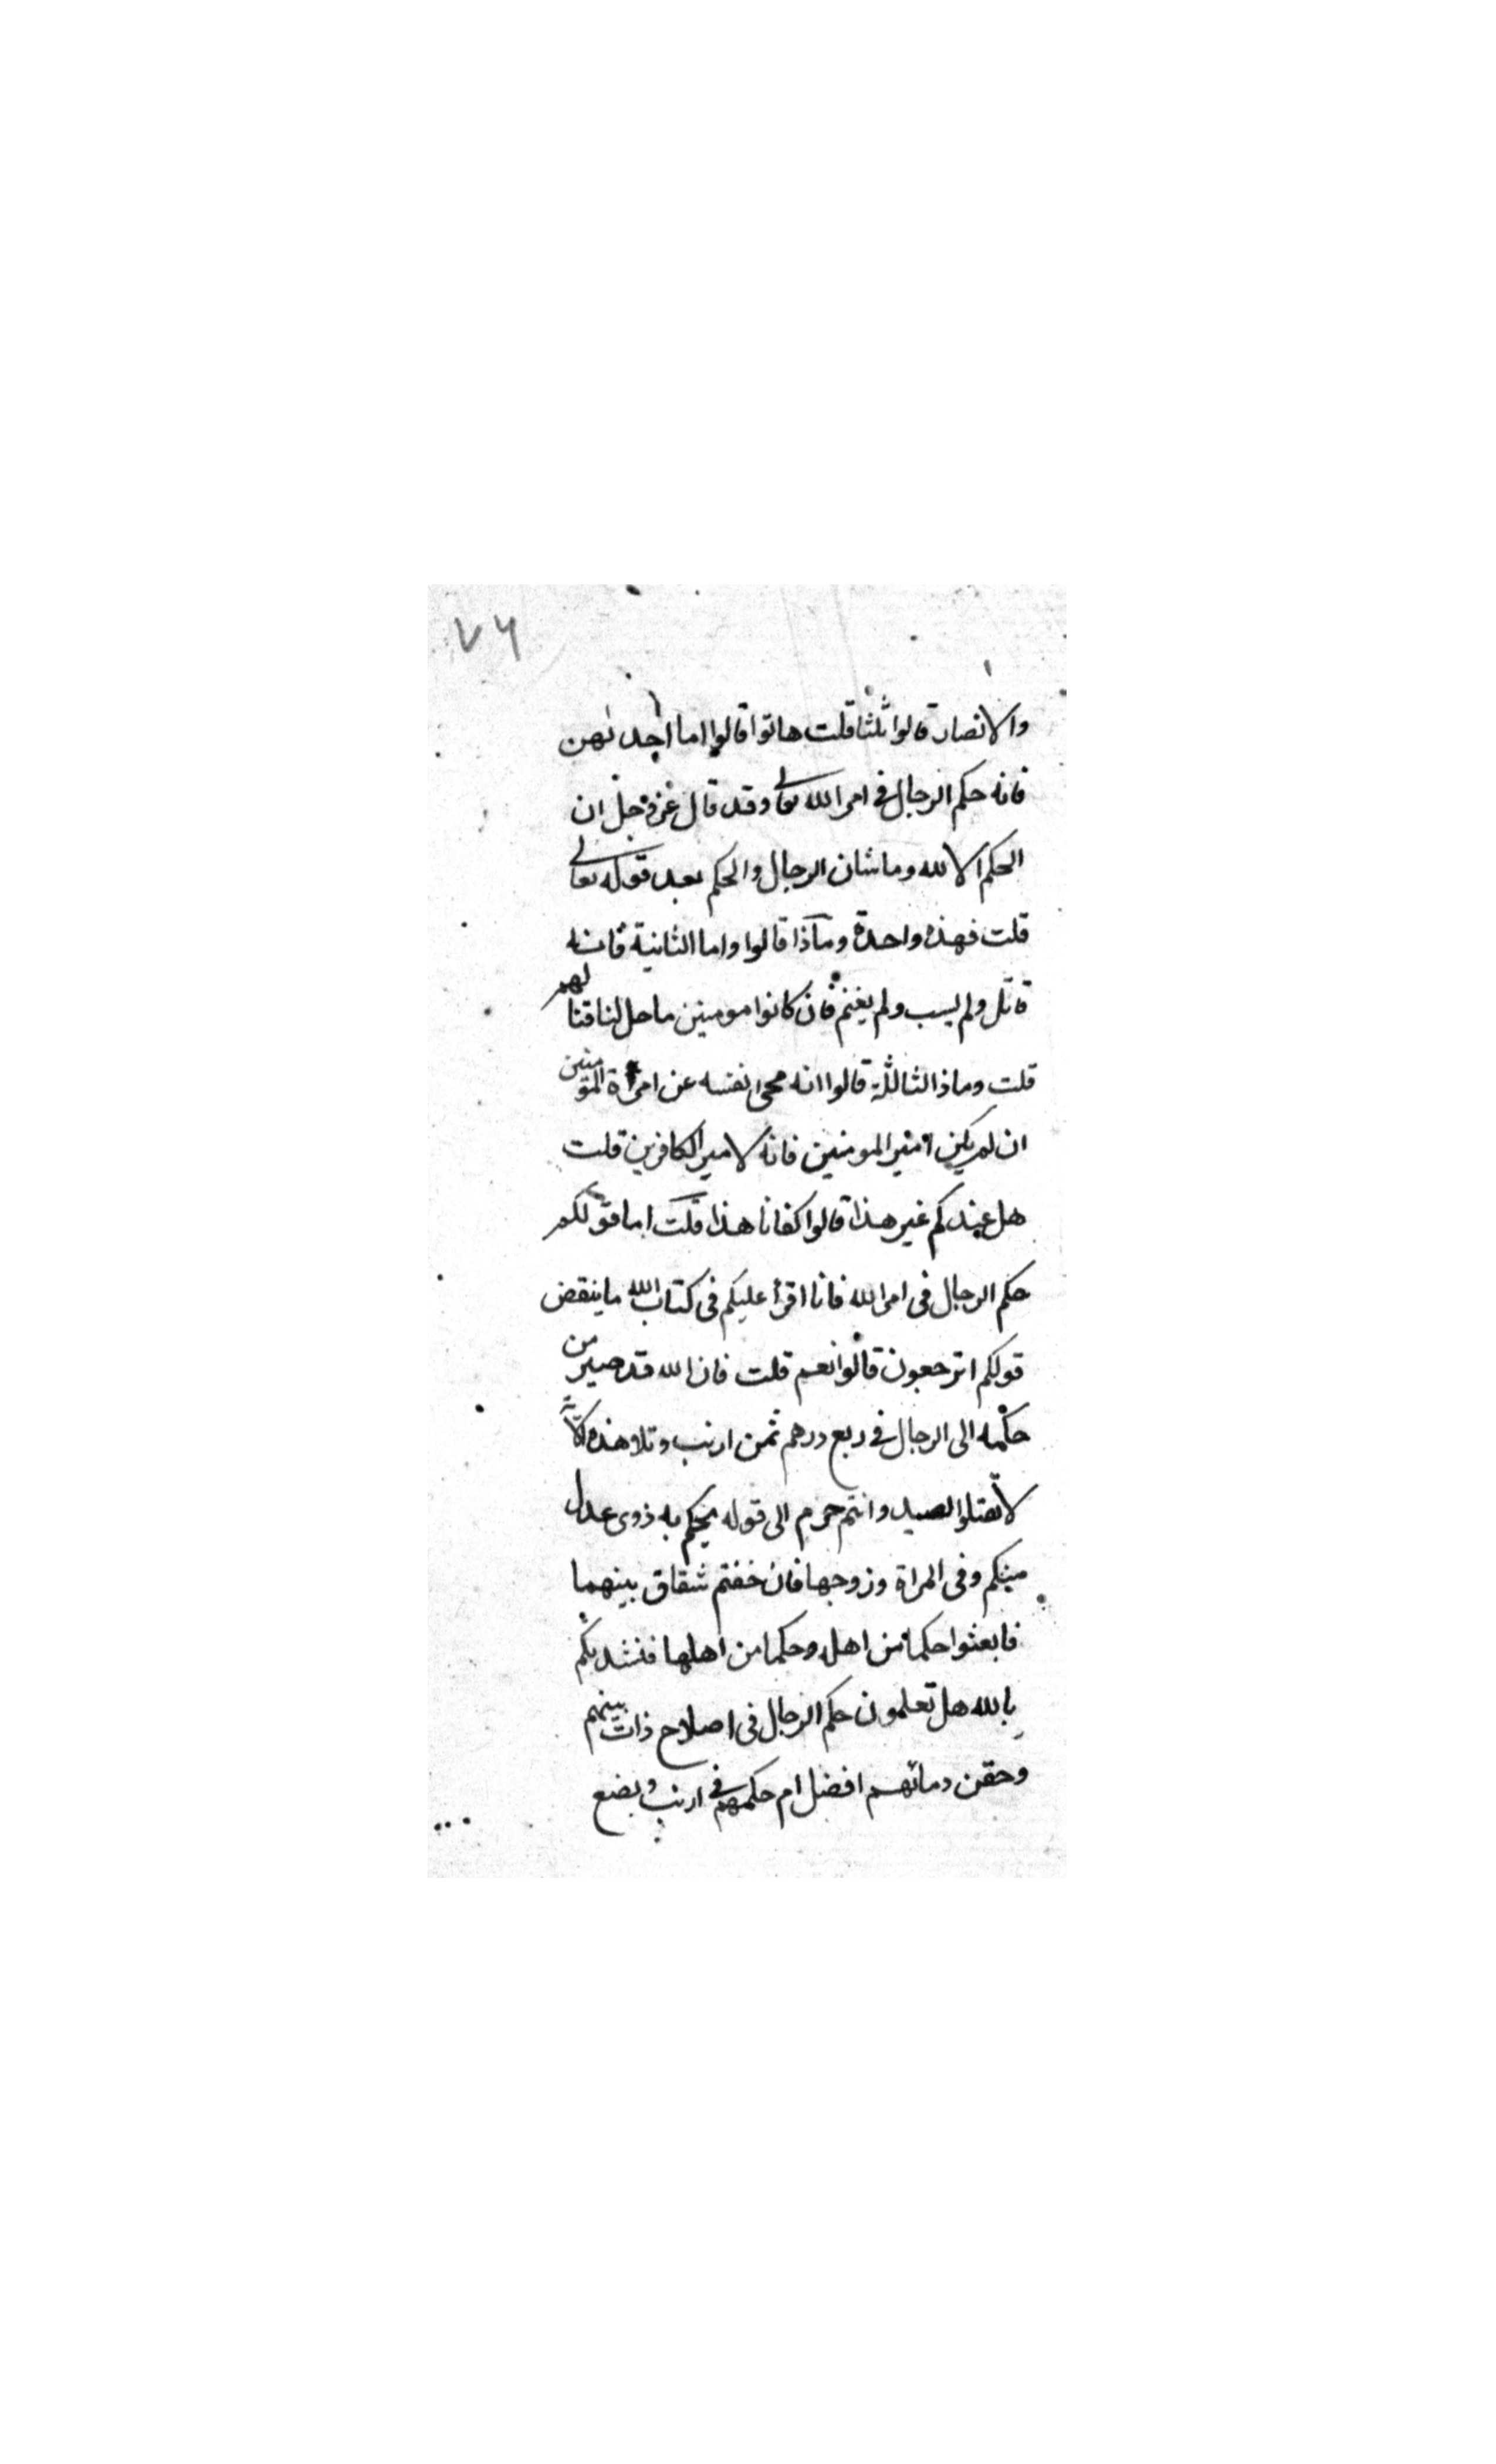 ٧٦
والانصار قالوا ثلثا قلت هاتوا قالوا اما احدٰىهن
فانه حكم الرجال في امر الله تعالى وقد قال عز وجل ان
الحكم الا لله وما شان الرجال والحكم بعد قوله تعالى
قلت فهذه واحدة وماذا قالوا واما الثانية فانه
قاتل ولم يسب ولم يغنم فان كانوا مومنين ما حل لنا قتالهم
قلت وماذا الثالثة قالوا انه محى نفسه عن امرة المومنين
ان لم يكن امير المومنين فانه لامير الكافرين قلت
هل عندكم غير هذا قالوا كفانا هذا قلت اما قولكم
حكم الرجال فى امر الله فانا اقرأ عليكم فى كتاب الله ما ينقض
قولكم اترجعون قالوا نعم قلت فان الله قد صير من
حكمه الى الرجال في ربع درهم ثمن ارنب وتلا هذه الآية
لا تقتلوا الصيد وانتم حرم الى قوله يحكم به ذوى عدل
منكم وفى المراة وزوجها فان خفتم شقاق بينهما
فابعثوا حكما من اهله وحكما من اهلها فنشدتكم
بالله هل تعلمون حكم الرجال فى اصلاح ذات بينهم
وحقن دمائهم افضل ام حكمهم في ارنب وبضع